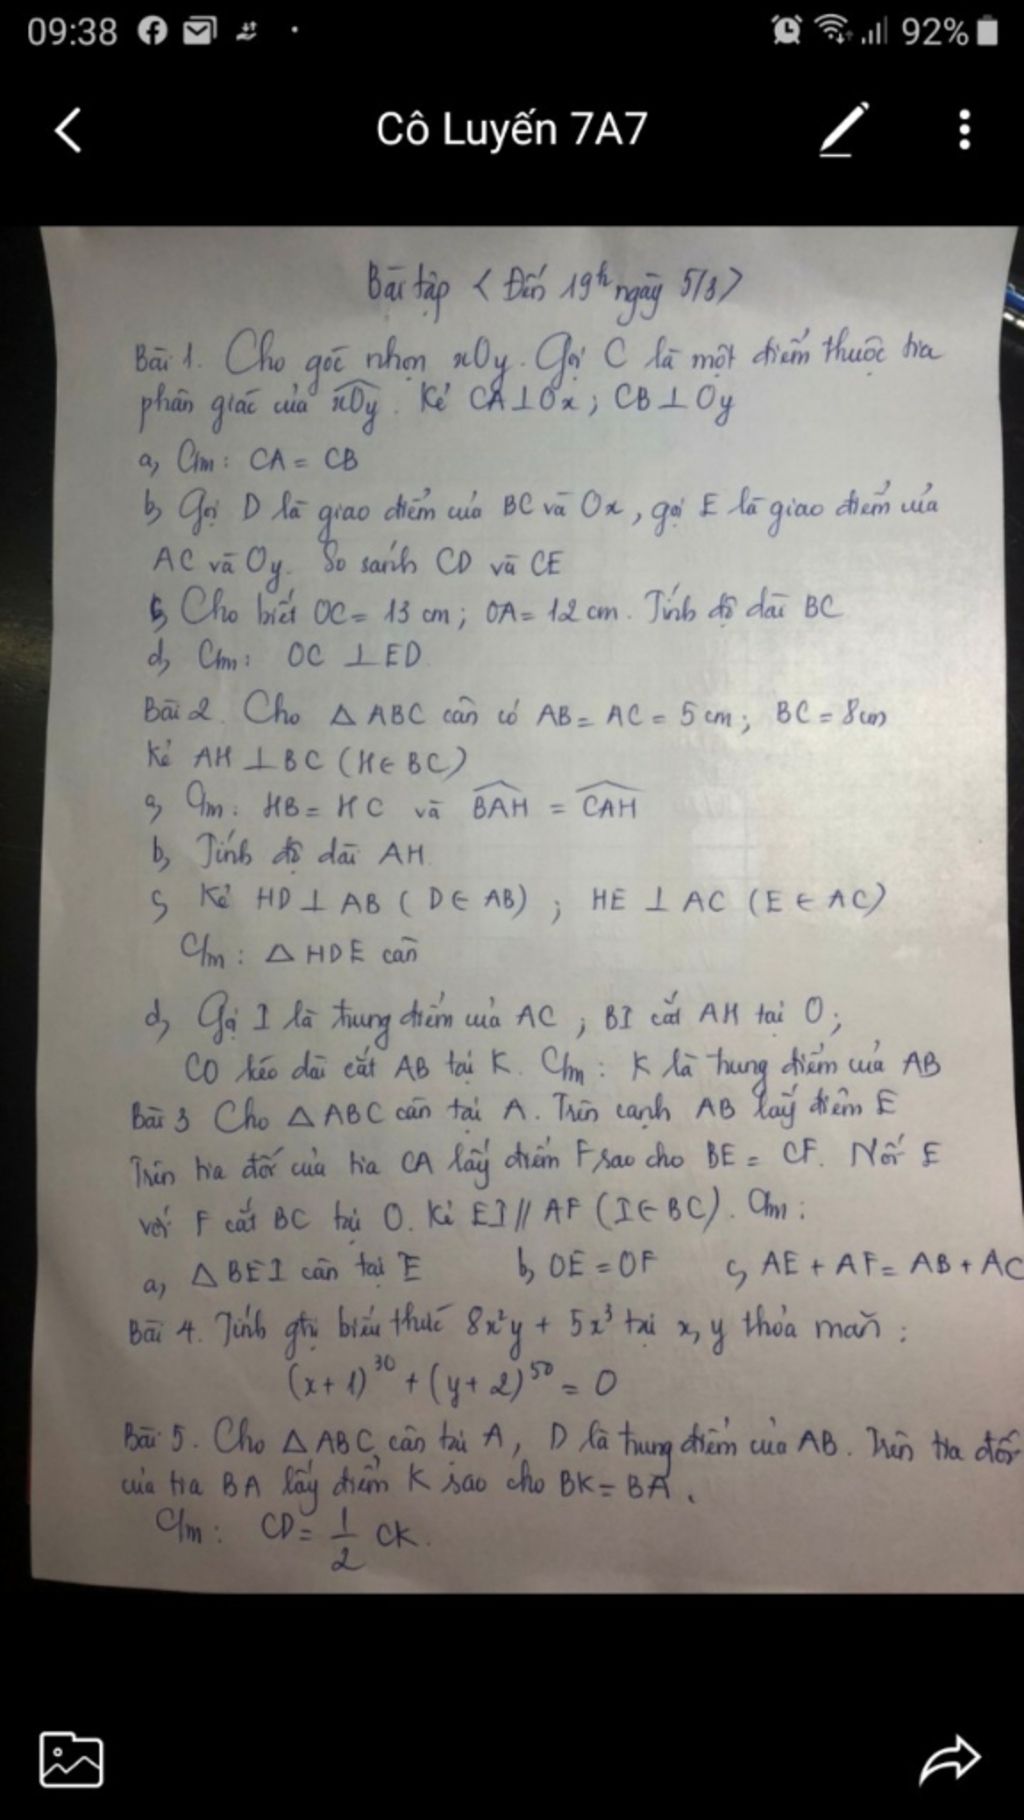 09:38
92%
Cô Luyến 7A7
Bài tập < Đến 19h ngày 5/3>
Bài 1. Cho góc nhọn xOy. Gọi C là một điểm thuộc tia
phân giác của xOy. Kẻ CA⊥Ox; CB⊥Oy
a, Cm: CA = CB
b, Gọi D là giao điểm của BC và Ox, gọi E là giao điểm của
AC và Oy. So sánh CD và CE
c, Cho biết OC = 13 cm; OA = 12 cm. Tính độ dài BC
d, Cm: OC ⊥ ED
Bài 2. Cho △ABC cân có AB = AC = 5 cm; BC = 8 cm
Kẻ AH ⊥ BC (H ∈ BC)
a, Cm: HB = HC và BAH = CAH
b, Tính độ dài AH.
c, Kẻ HD ⊥ AB (D ∈ AB); HE ⊥ AC (E ∈ AC)
C/m: △HDE cân
d, Gọi I là trung điểm của AC; BI cắt AH tại O;
CO kéo dài cắt AB tại K. C/m: K là trung điểm của AB
Bài 3 Cho △ABC cân tại A. Trên cạnh AB lấy điểm E
Trên tia đối của tia CA lấy điểm F sao cho BE = CF. Nối E
với F cắt BC tại O. Kẻ EI // AF (I ∈ BC). Cm:
a, △BEI cân tại E b, OE = OF c, AE + AF = AB + AC
Bài 4. Tính gtrị biểu thức 8x²y + 5x³ tại x, y thỏa mãn:
(x+1)³⁰ + (y+2)⁵⁰ = 0
Bài 5. Cho △ABC cân tại A, D là trung điểm của AB. Trên tia đối
của tia BA lấy điểm K sao cho BK = BA.
C/m: CD = 1/2 CK.